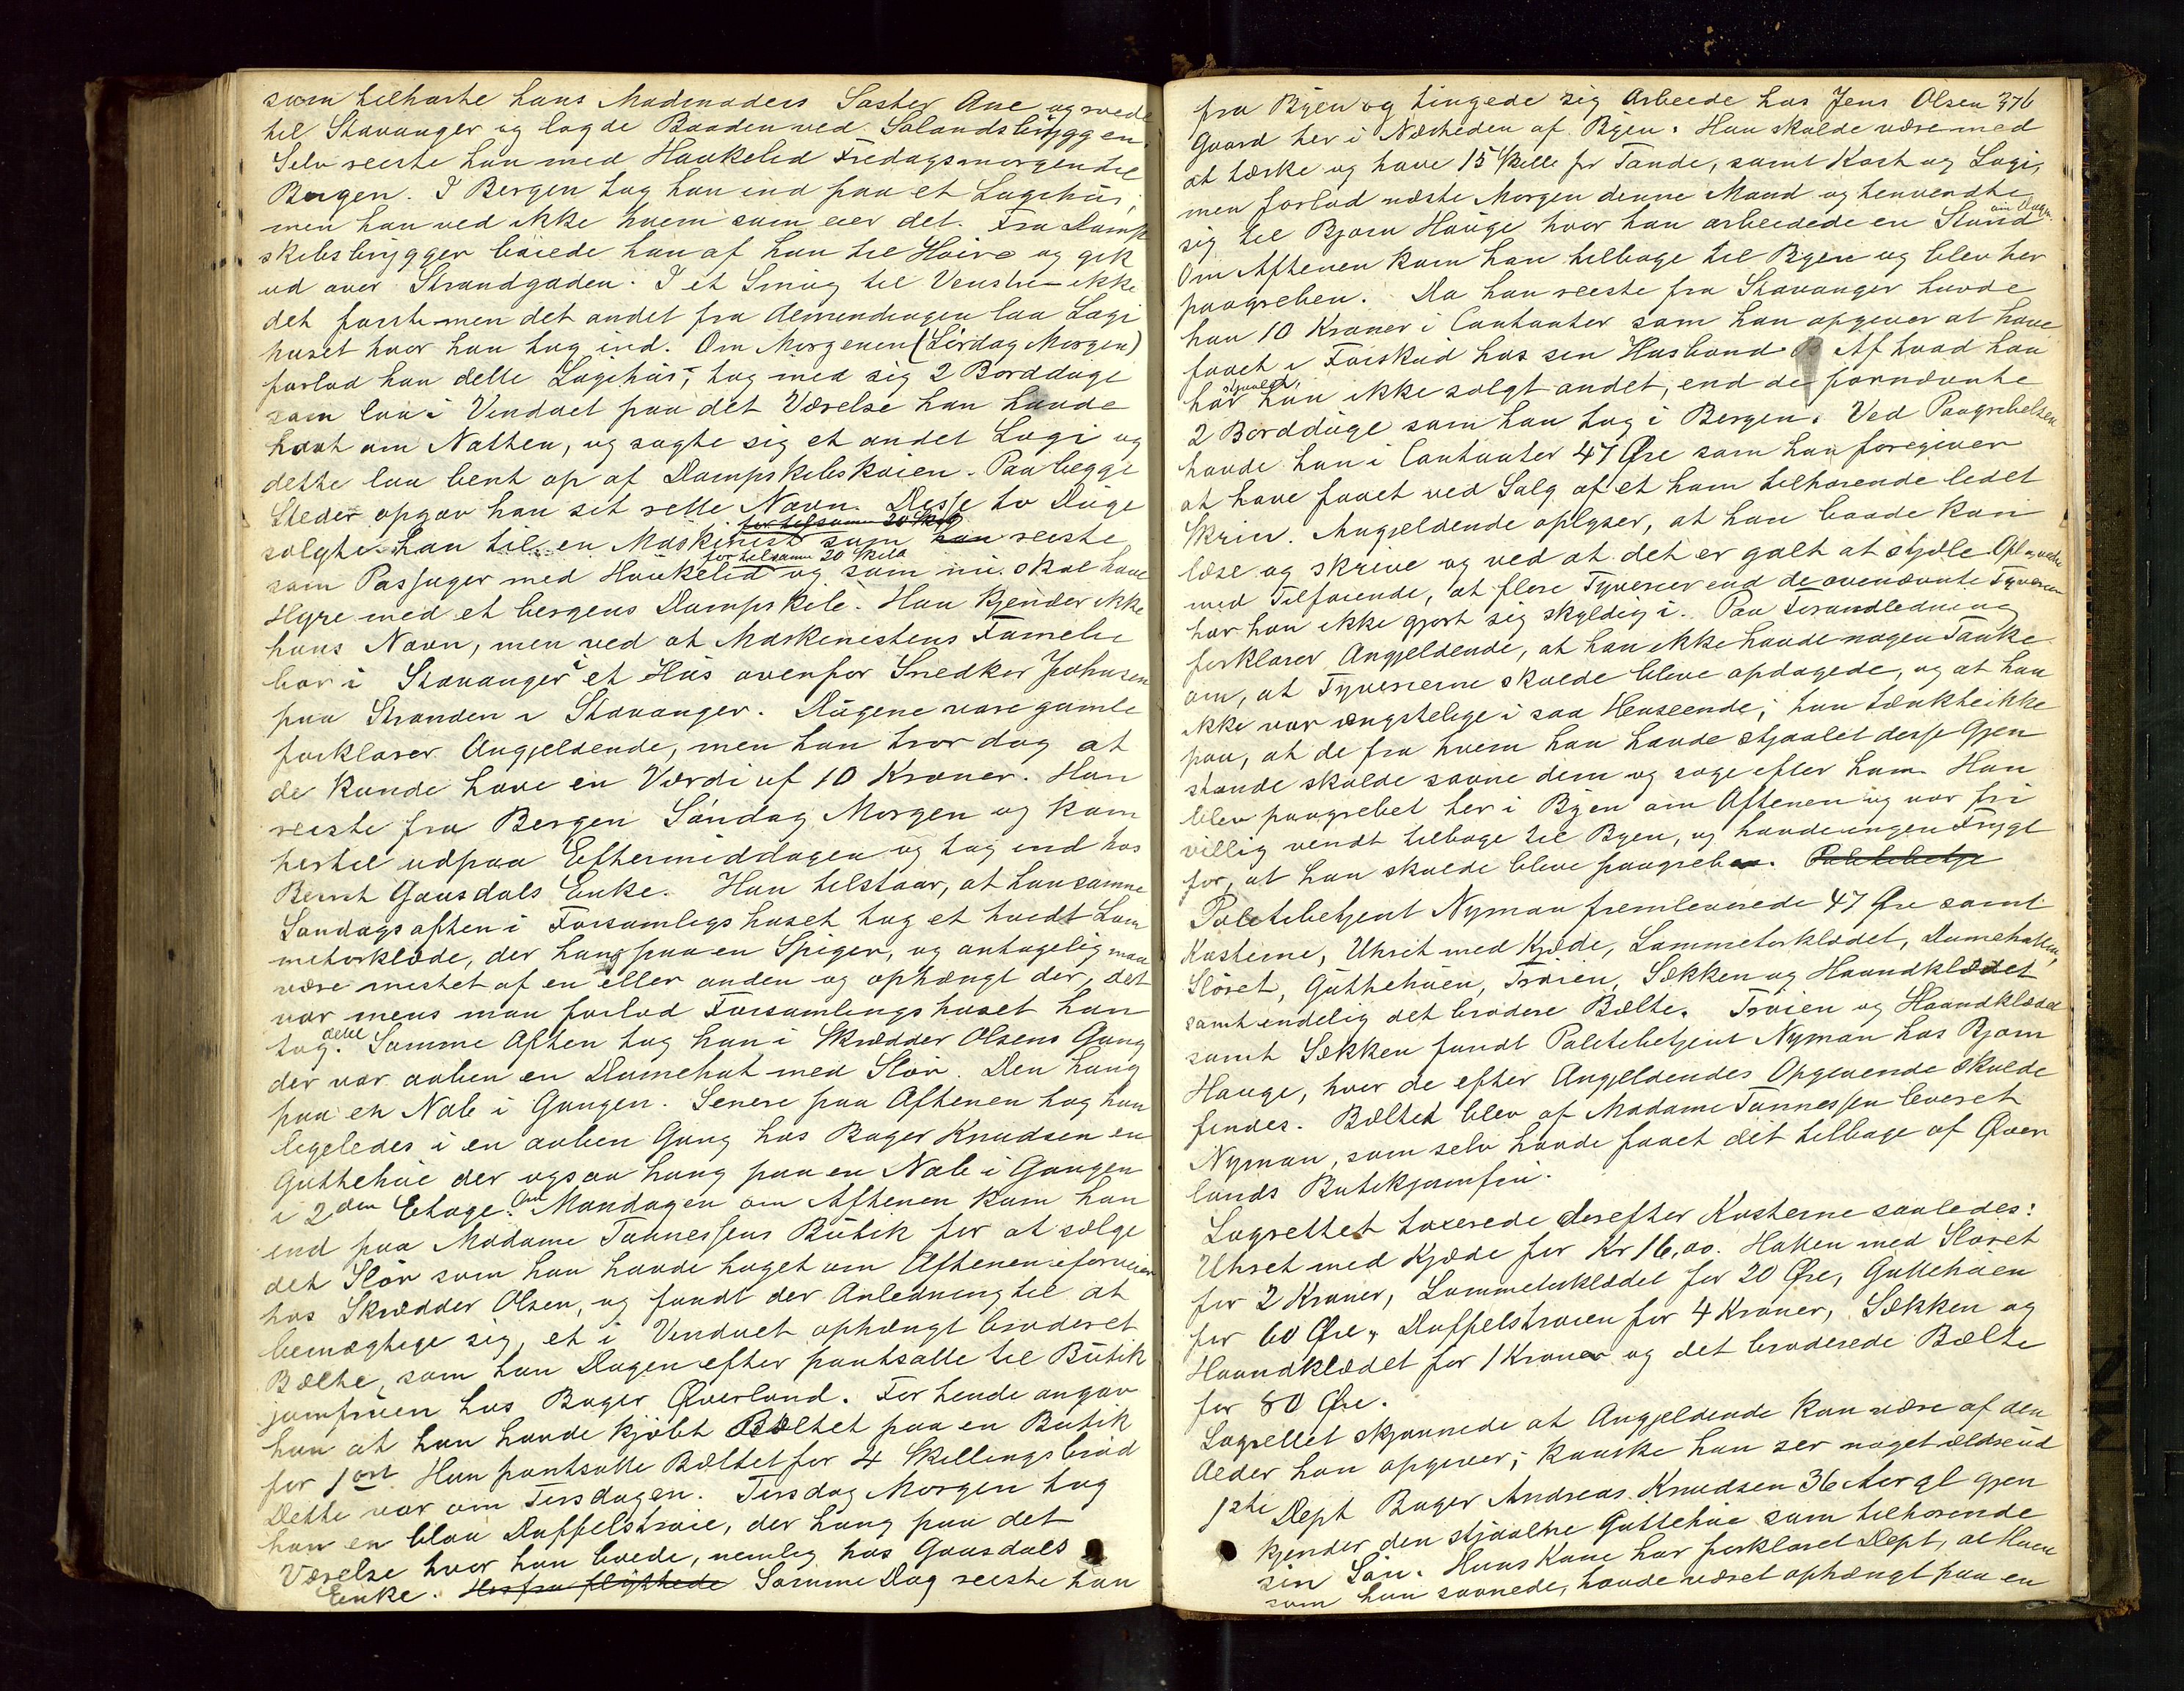 som tilhørte hans Madmoders Søster Ane og roede
til Stavanger og lagde Baaden ved Sølandsbryggen.
Selv reiste han med Haukelid Fredagsmorgen til
Bergen. I Bergen tog han ind paa et Logihüs,
men han ved ikke hvem som eier det. Fra Damp
skibsbryggen bøiede han af hen til Høire og gik
ud over Strandgaden. I et Smüg til Venstre ikke
det første men det andet fra Almendingen laa Logi
huset hvor han tog ind. Om Morgenen (Lørdag Morgen)
forlod han dette Logihüs, tog med sig 2 Borddüge
som laa i Vinduet paa det Værelse han havde
havt om Natten, og søgte sig et andet Logi og
dette laa bent op af Dampskibskaien. Paa begge
Steder opgav han sit rette Navn. Disse to Düge
for tilsamm 20 Skill
solgte han til en Maskinist som han reiste
for tilsamm 20 Skill
som Passager med Haukelid og som nu skal have
Hyre med et bergens Dampskib. Han kjender ikke
hans Navn, men ved at Maskinistens Familie
bor i Stavanger i et Hüs ovenfor Snedker Johnsen
paa Stranden i Stavanger. Dügene vare gamle
forklarer Angjeldende, men han tror dog at
de kunde have en Værdi af 10 Kroner. Han
reiste fra Bergen Søndag Morgen og kom
hertil udpaa Eftermiddagen og tog ind hos
Bernt Gausdals Enke. Han tilstaar, at han samme
Søndagsaften i Forsamligshuset tog et hvidt Lom
metørklæde, der hang paa en Spiger, og antagelig maa
være mistet af en eller anden og ophængt der, det
var mens man forlod Forsamlingshuset han
tog dette. Samme Aften tog han i Skrædder Olsens Gang
der var aaben en Damehat med Slør. Den hang
paa en Nab i Gangen. Senere paa Aftenen tog han
ligeledes i en aaben Gang hos Bager Knudsen en
Guttehüe der ogsaa hang paa en Nab i Gangen
i 2den Etage. Om Mandagen om Aftenen kom han
ind paa Madame Tønnessens Bütik for at sælge
det Slør som han havde taget om Aftenen iforveien
hos Skrædder Olsen, og fandt der Anledning til at
bemægtige sig, et i Vinduet ophængt broderet
Bælte, som han Dagen efter pantsatte til Bütik
jomfruen hos Bager Øverland. For hende angav
han at han havde kjøbt Bæltet paa en Butik
for 1 ort. Han pantsatte Bæltet for 4 Skillingsbrød
Dette var om Tirsdagen. Tirsdag Morgen tog
han en blaa Duffelstrøie, der hang paa det
Værelse hvor han boede, nemlig hos Gausdals
Enke. Herfra flyttede Samme Dag reiste han
fra Byen og tingede sig Arbeide hos Jens Olsen 376
Gaard her i Nærheden af Byen. Han skulde være med
at tærske og have 15 Skill pr Tønde, samt Kost og Logi,
men forlod næste Morgen denne Mand og henvendte
sig til Bjørn Haüge hvor han arbeidede en Stund om Dagen.
Om Aftenen kom han tilbage til Byen og blev her
paagreben. Da han reiste fra Stavanger havde
han 10 Kroner i Contanter som han opgiver at have
faaet i Forskud hos sin Husbond. Af hvad han
har stjaalet, han ikke solgt andet, end de fornævnte
2 Borddüge som han tog i Bergen. Ved Paagribelsen
havde han i Contanter 47 Øre som han foregiver
at have faaet ved Salg af et ham tilhørende lidet
Skrin. Angjeldende oplyser, at han baade kan
læse og skrive og ved at det er galt at stjæle. Opl. vedr.
med Tilføiende, at flere Tyverier end de ovennævnte Tyverier
har han ikke gjort sig skyldig i. Paa Foranledning
forklarer Angjeldende, at han ikke havde nogen Tanke
om, at Tyverierne skulde blive opdagede, og at han
ikke var ængstelige i saa Henseende; han tænkte ikke
paa, at de fra hvem han havde stjaalet disse Gjen
stande skulde savne dem og søge efter ham. Han
blev paagrebet her i Byen om Aftenen og var fri
villig vendt tilbage til Byen, og havde ingen Frygt
for, at han skulde blive paagreben. Politibetje
Politibetjent Nyman fremleverede 47 Øre samt
Kosterne, Uhret med Kjæde, Lommetørklædet, Damehatten,
Sløret, Güttehüen, Trøien, Sækken og Haandklædet
samt endelig det brodere Bælte. Trøien og Haandklædet
samt Sækken fandt Politibetjent Nyman hos Bjørn
Hauge, hvor de efter Angjeldendes Opgivende skulde
findes. Bæltet blev af Madame Tønnessen leveret
Nyman, som selv havde faaet det tilbage af Øver
lands Butikjomfru.
Lagrettet taxerede derefter Kosterne saaledes:
Uhret med Kjæde for Kr 16,00. Hatten med Sløret
for 2 Kroner, Lommetørklædet for 20 Øre, Guttehüen
for 60 Øre, Duffelstrøien for 4 Kroner, Sækken og
Haandklædet for 1 Krone og det broderede Bælte
for 80 Øre.
Lagrettet skjønnede at Angjeldende kan være af den
Alder han opgiver; kanske han ser noget ældre ud
1ste Dept Bager Andreas Knudsen 36 Aar gl gjen
kjender den stjaalne Guttehüe som tilhørende
sin Søn. Hans Kone har forklaret Dept, at Huen
som hun savnede, havde været ophængt paa en